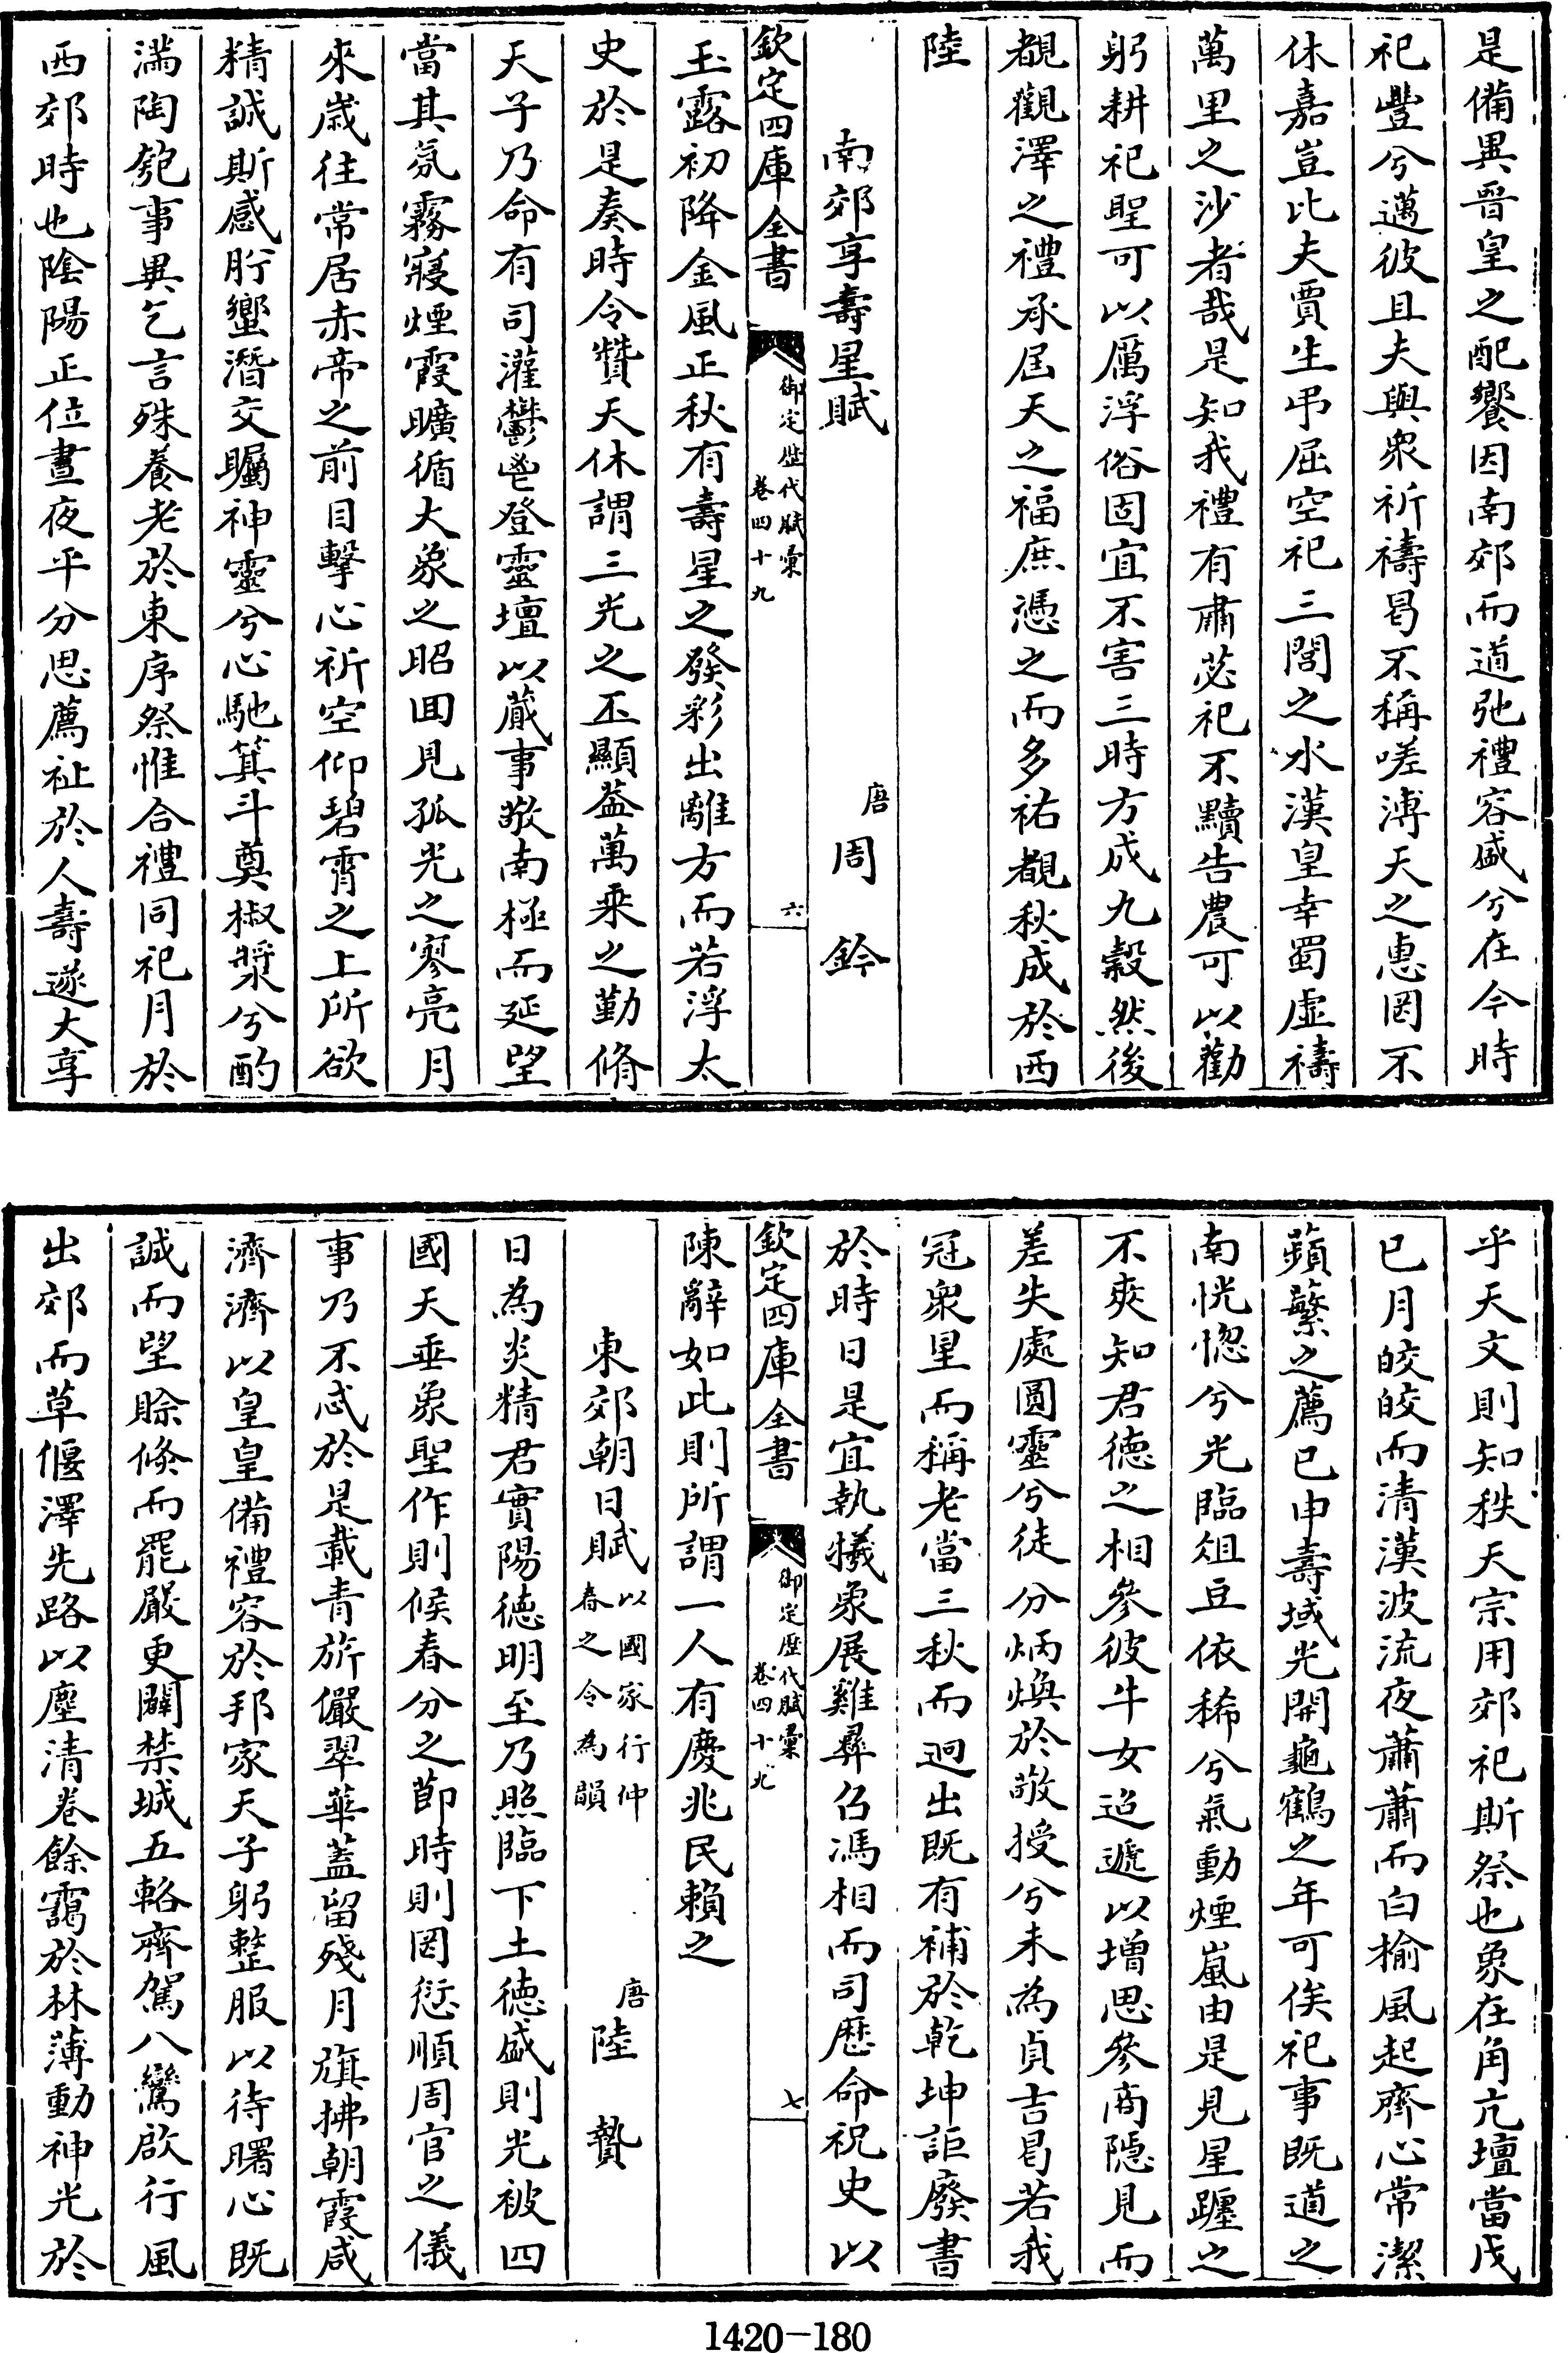 是備異晉皇之配饗因南郊而道弛禮容盛兮在今時
祀豐兮邁彼且夫與衆祈禱曷不稱嗟溥天之惠罔不
休嘉豈比夫賈生弔屈空祀三閭之水漢皇幸蜀虛禱
萬里之沙者哉是知我禮有肅苾祀不黷告農可以勸
躬耕祀聖可以厲浮俗固宜不害三時方成九穀然後
覩觀澤之禮承屆天之福庶憑之而多祐覩秋成於西
陸
南郊享壽星賦
唐
周鈐
欽定四庫全書
御定歴代賦彙
卷四十九
六
玉露初降金風正秋有壽星之發彩出離方而若浮太
史於是奏時令贊天休謂三光之丕顯葢萬乘之勤脩
天子乃命有司灌鬱鬯登靈壇以蕆事敬南極而延望
當其氛霧寢煙霞曠循大象之昭回見孤光之寥亮月
來歲往常居赤帝之前目擊心祈空仰碧霄之上所欲
精誠斯感肸蠁潛交矚神靈兮心馳箕斗奠椒漿兮酌
滿陶匏事異乞言殊養老於東序祭惟合禮同祀月於
西郊時也陰陽正位晝夜平分思薦祉於人壽遂大享
乎天文則知秩天宗用郊祀斯祭也象在角亢壇當戊
已月皎皎而清漢波流夜蕭蕭而白榆風起齊心常潔
蘋蘩之薦已申壽域光開龜鶴之年可俟祀事既遒之
南恍惚兮光臨俎豆依稀兮氣動煙嵐由是見星躔之
不爽知君德之相參彼牛女迢遞以增思參商隠見而
差失處圓靈兮徒分炳煥於敬授兮未為貞吉曷若我
冠衆星而稱老當三秋而迥出既有補於乾坤詎廢書
於時日是宜執犧象展雞彝召馮相而司歴命祝史以
欽定四庫全書
御定歴代賦彙
卷四十九
七
陳辭如此則所謂一人有慶兆民賴之
東郊朝日賦
以國家行仲
春之令為韻
唐
陸贄
日為炎精君實陽德明至乃照臨下土德盛則光被四
國天垂象聖作則候春分之節時則罔愆順周官之儀
事乃不忒於是載青旂儼翠華蓋留殘月旗拂朝霞咸
濟濟以皇皇備禮容於邦家天子躬整服以待曙心既
誠而望賒倏而罷嚴更闢禁城五輅齊駕八鸞啟行風
出郊而草偃澤先路以塵清卷餘靄於林薄動神光於
1420-180